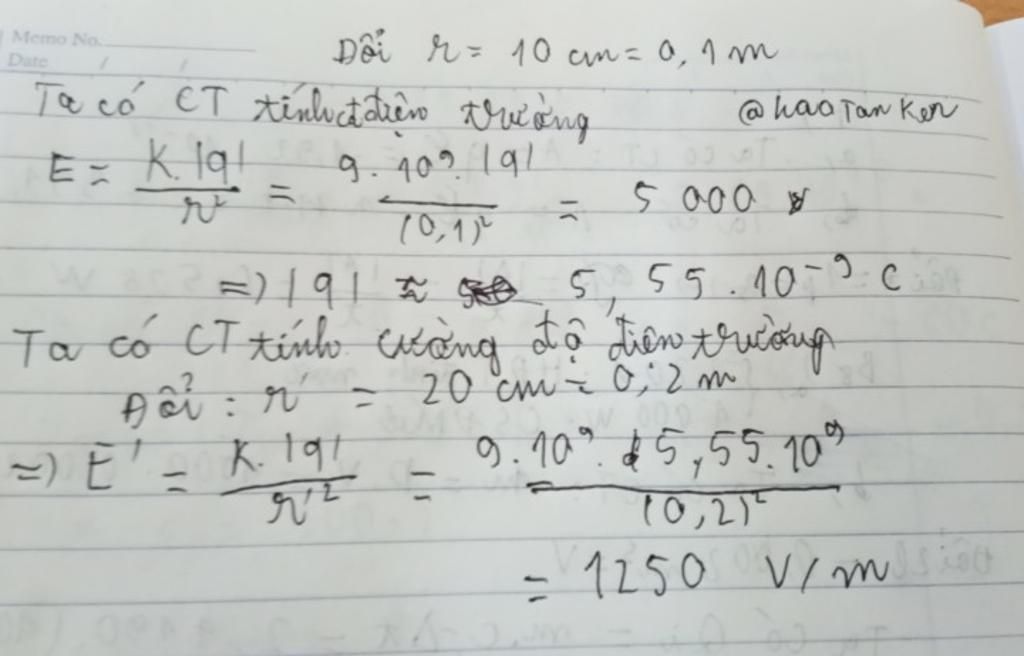 Memo No.
Date / /
Đổi r = 10 cm = 0,1 m
Ta có CT tính cđ điện trường @haoTanKer
E = K.|q| / r² = 9.10⁹.|q| / (0,1)² = 5 000
=> |q| ≈ 5,55.10⁻⁹ C
Ta có CT tính cường độ điện trường
Đổi : r' = 20 cm = 0,2 m
=> E' = K.|q| / r'² = 9.10⁹. 5,55.10⁹ / (0,2)²
= 1250 V/m